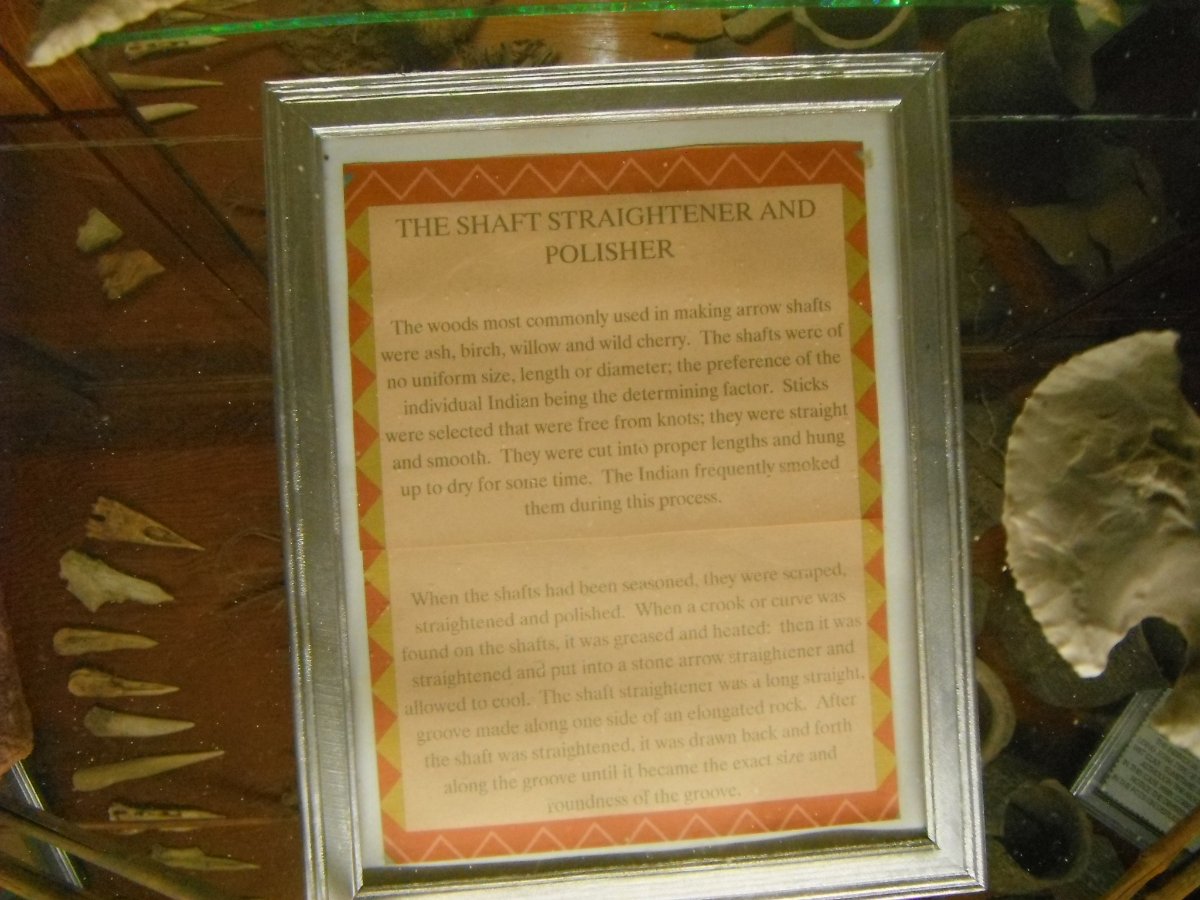 THE SHAFT STRAIGHTENER AND
POLISHER
The woods most commonly used in making arrow shafts
were ash, birch, willow and wild cherry. The shafts were of
no uniform size, length or diameter; the preference of the
individual Indian being the determining factor. Sticks
were selected that were free from knots; they were straight
and smooth. They were cut into proper lengths and hung
up to dry for some time. The Indian frequently smoked
them during this process.
When the shafts had been seasoned, they were scraped,
straightened and polished. When a crook or curve was
found on the shafts, it was greased and heated: then it was
straightened and put into a stone arrow straightener and
allowed to cool. The shaft straightener was a long straight,
groove made along one side of an elongated rock. After
the shaft was straightened, it was drawn back and forth
along the groove until it became the exact size and
roundness of the groove.